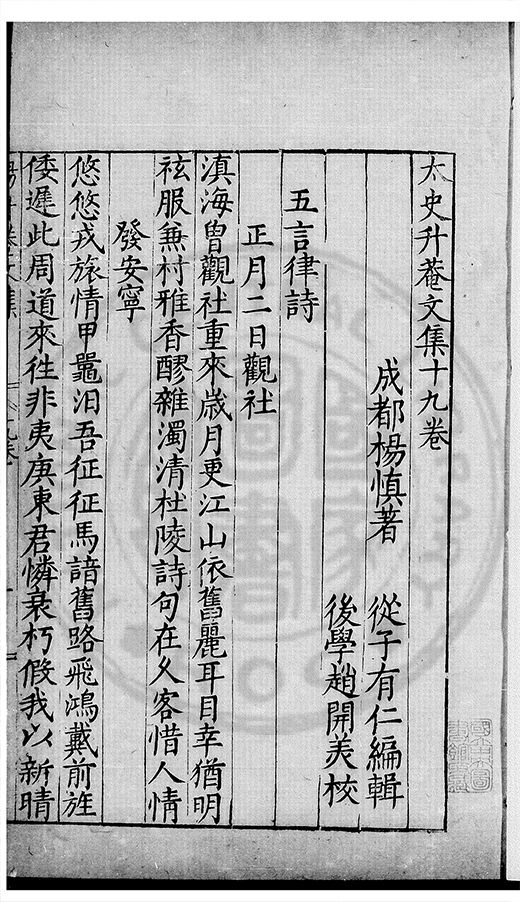 太史升菴文集十九卷
成都楊慎著 從子有仁編輯
後學趙開美校
五言律詩
正月二日觀社
滇海曾觀社重來歲月更江山依舊麗耳目幸猶明
袨服兼村雅香醪雜濁清杜陵詩句在久客惜人情
發安寧
悠悠戎旅情甲鼂汨吾征征馬諳舊路飛鴻戴前旌
倭遲此周道來往非夷庚東君憐衰朽假我以新晴